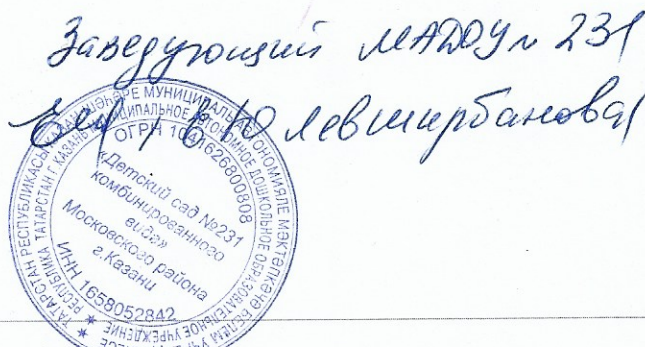 Заведующий МАДОУ № 231
Е.Ю. Левширбанова
ТАТАРСТАН РЕСПУБЛИКАСЫ КАЗАН ШӘҺӘРЕ МУНИЦИПАЛЬ АВТОНОМИЯЛЕ МӘКТӘПКӘЧӘ БЕЛЕМ
РЕСПУБЛИКА ТАТАРСТАН Г. КАЗАНЬ МУНИЦИПАЛЬНОЕ АВТОНОМНОЕ ДОШКОЛЬНОЕ ОБРАЗОВАТЕЛЬНОЕ УЧРЕЖДЕНИЕ
ОГРН 1041626800808
«Детский сад №231
комбинированного
вида»
Московского района
г.Казани
ИНН 1658052842